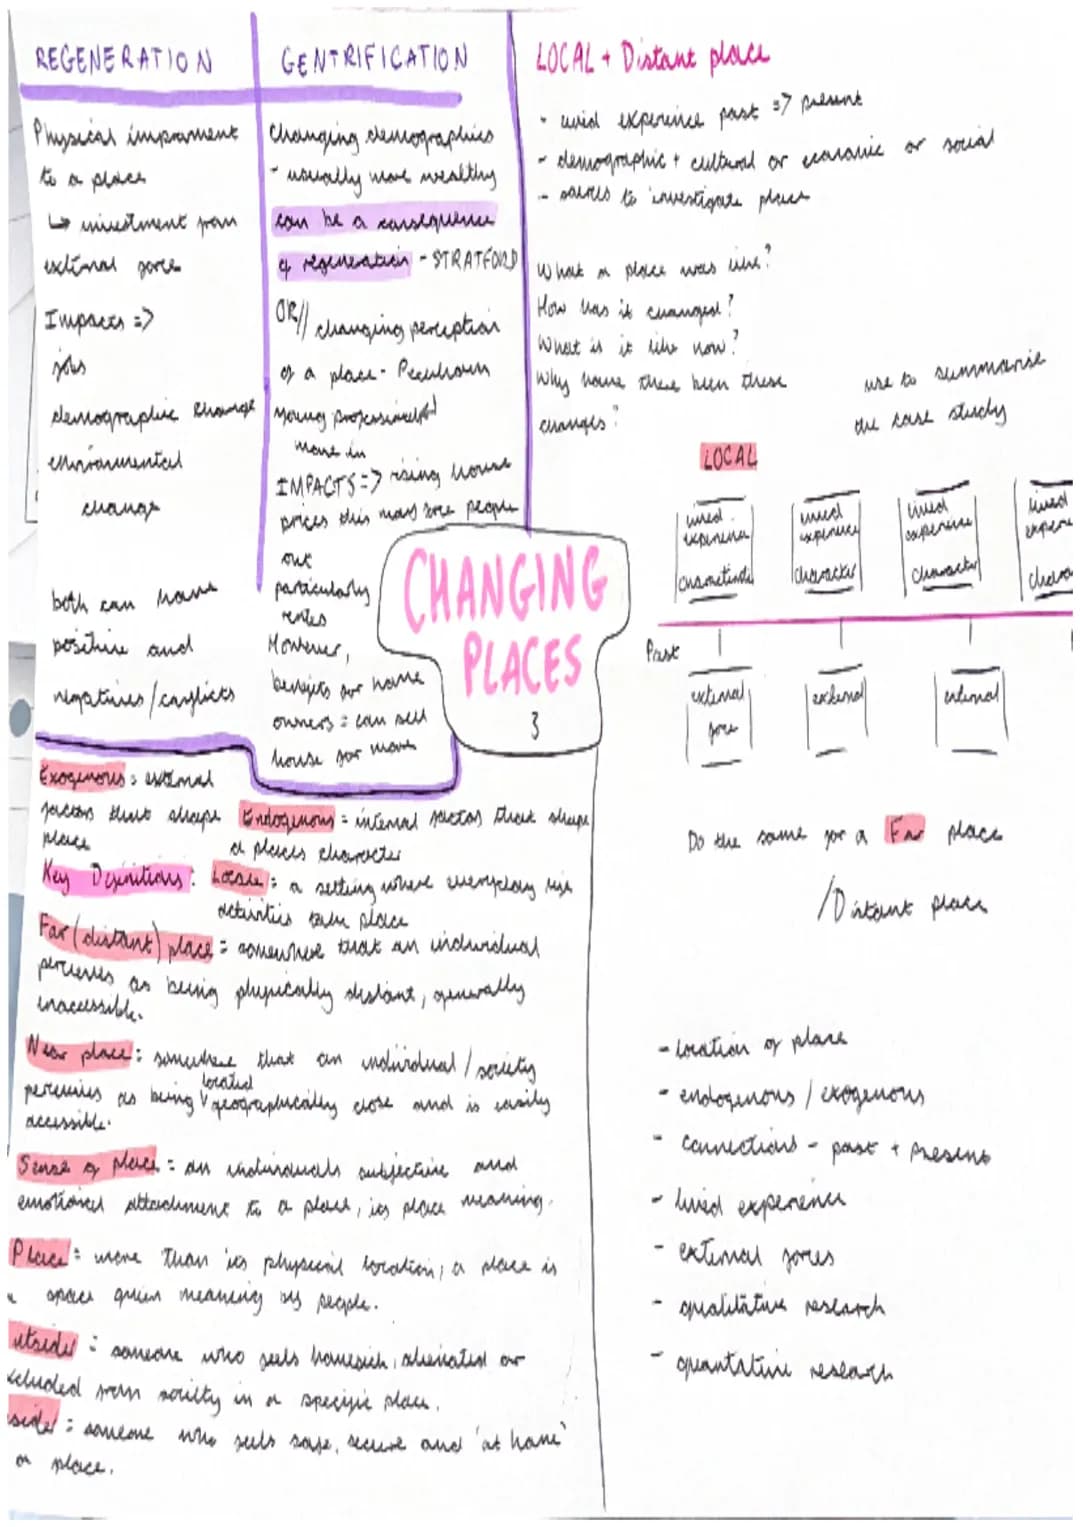 REGENERATION
Physical imporament
to a place
↳ investment from
external force
Impacts =>
jobs
demographic change
environmental
change
both can have
positive and
negatives/conflicts
GENTRIFICATION
Changing demographics
- usually more wealthy
can be a consequence
of regeneration - STRATFORD
OR// changing perception
of a place - Peckham
Young professionals
move in
IMPACTS => rising house
prices this may force people
out
particularly
rentes
However,
benefits for home
owners = can sell
house for more
LOCAL + Distant place
- lived experience past => present
- demographic + cultural or economic or social
- sources to investigate place
What a place was like?
How has it changed?
What is it like now?
Why have there been these
changes?
use to summarise
the case study
LOCAL
lived experience characteristic
lived experience character
lived experience character
lived
Past
external force
external
external
Do the same for a Far place
/Distant place
- location of place
- endogenous / exogenous
- connections - past + present
- lived experience
- external forces
- qualitative research
- quantative research
CHANGING
PLACES
3
Exogenous = external
factors that shape
place
Endogenous = internal factors that shape
a places character
Key Definitions: Locale = a setting where everyday life
activities take place
Far (distant) place = somewhere that an individual
percieves as being physically distant, generally
inaccessible.
Near place = somewhere that an individual / society
percieves as being located geographically close and is easily
accessible.
Sense of place = an individuals subjective and
emotional attachment to a place, its place meaning.
Place = more than its physical location, a place is
a space given meaning by people.
utsider = someone who feels homesick, alienated or
xcluded from society in a specific place.
sider = someone who feels safe, secure and 'at home'
place.